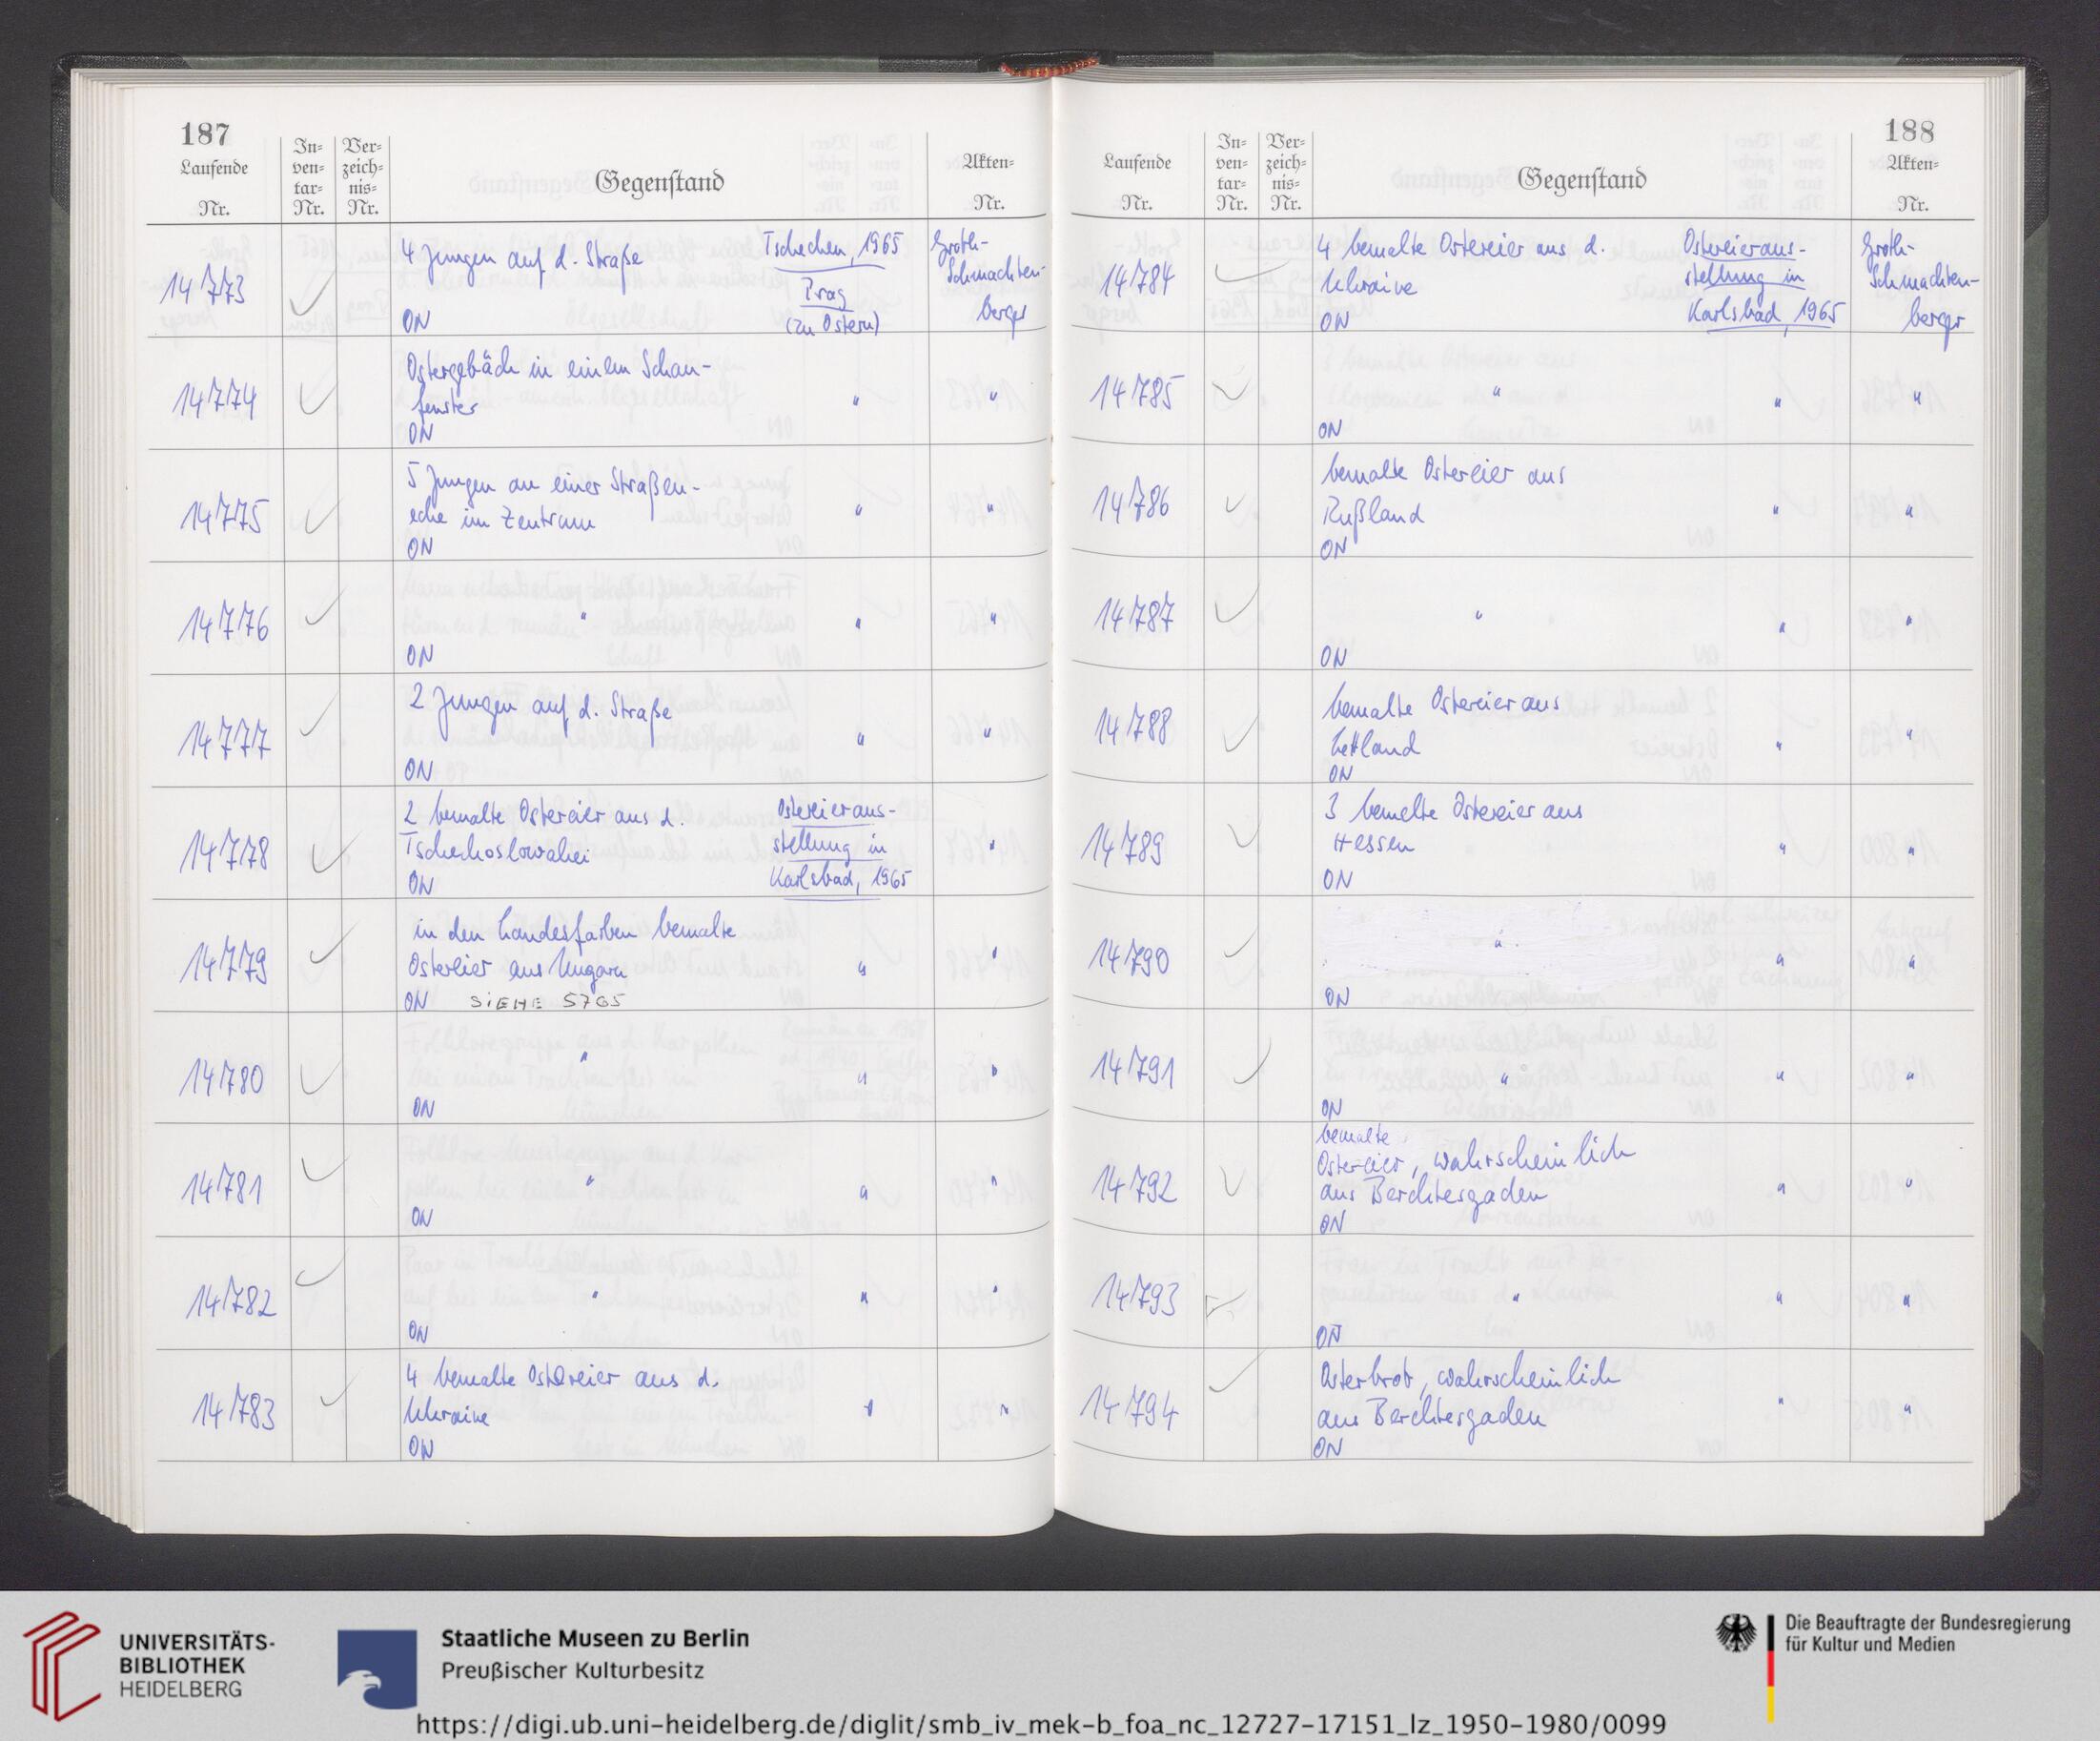 187
Laufende
Nr.
In-
ven-
tar-
Nr.
Ver-
zeich-
nis-
Nr.
Gegenstand
Akten-
Nr.
14773
4 Jungen auf d. Straße
ON
Tschechen, 1965
Prag
(zu Ostern)
Groth-
Schmachten-
berger
14774
Ostergebäck in einem Schau-
fenster
ON
"
"
14775
5 Jungen an einer Straßen-
ecke im Zentrum
ON
"
"
14776
"
ON
"
"
14777
2 Jungen auf d. Straße
ON
"
"
14778
2 bemalte Ostereier aus d.
Tschechoslowakei
ON
Ostereieraus-
stellung in
Karlsbad, 1965
"
14779
in den Landesfarben bemalte
Ostereier aus Ungarn
ON SIEHE 5765
"
"
14780
"
ON
"
"
14781
"
ON
"
"
14782
"
ON
"
"
14783
4 bemalte Ostereier aus d.
Ukraine
ON
"
"
188
Laufende
Nr.
In-
ven-
tar-
Nr.
Ver-
zeich-
nis-
Nr.
Gegenstand
Akten-
Nr.
14784
4 bemalte Ostereier aus d.
Ukraine
ON
Ostereieraus-
stellung in
Karlsbad, 1965
Groth-
Schmachten-
berger
14785
"
ON
"
"
14786
bemalte Ostereier aus
Rußland
ON
"
"
14787
"
ON
"
"
14788
bemalte Ostereier aus
Lettland
ON
"
"
14789
3 bemalte Ostereier aus
Hessen
ON
"
"
14790
"
ON
"
"
14791
"
ON
"
"
14792
bemalte
Ostereier, wahrscheinlich
aus Berchtesgaden
ON
"
"
14793
"
ON
"
"
14794
Osterbrot, wahrscheinlich
aus Berchtesgaden
ON
"
"
UNIVERSITÄTS-
BIBLIOTHEK
HEIDELBERG
Staatliche Museen zu Berlin
Preußischer Kulturbesitz
Die Beauftragte der Bundesregierung
für Kultur und Medien
https://digi.ub.uni-heidelberg.de/diglit/smb_iv_mek-b_foa_nc_12727-17151_lz_1950-1980/0099